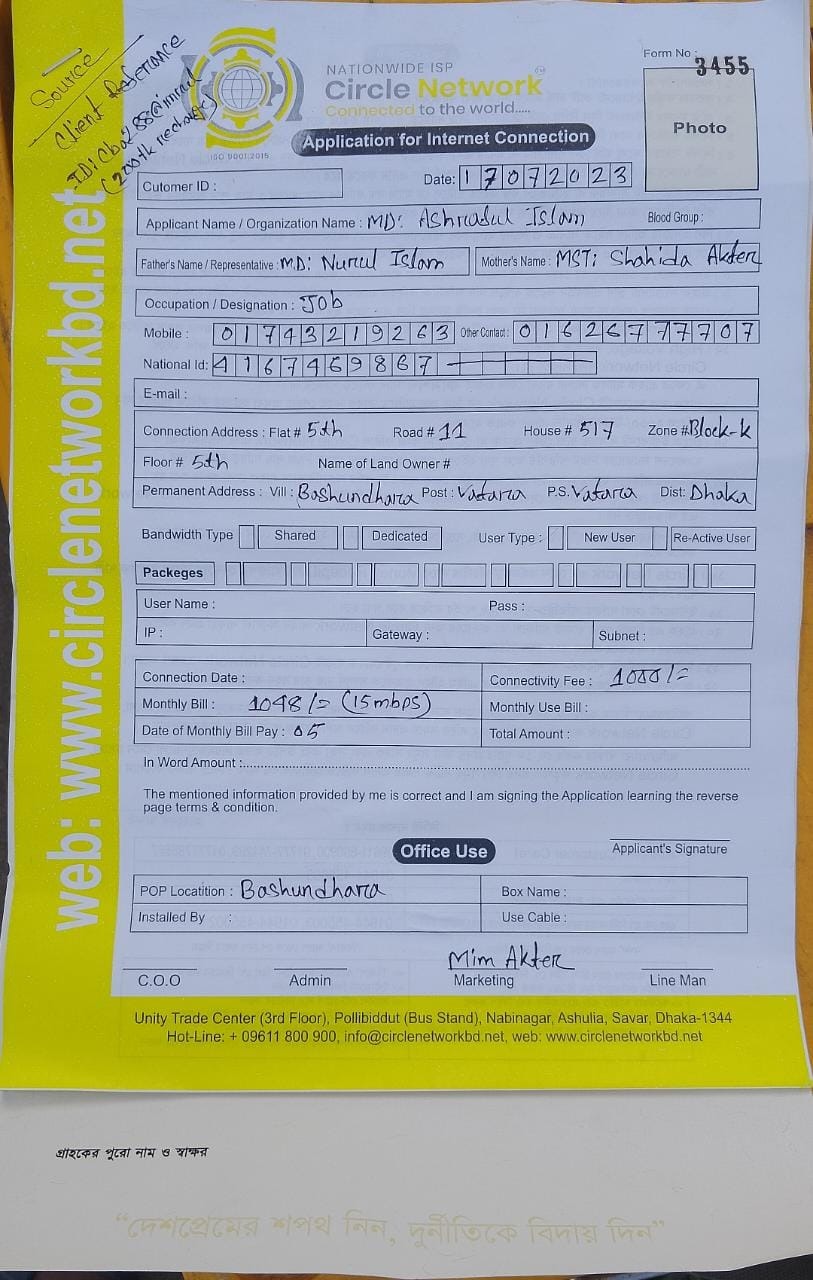 Source
Client Reference
ID: Cba288@imral
(200tk recharge)
NATIONWIDE ISP
Circle Network
Connected to the world.....
ISO 9001:2015
Form No : 3455
Photo
Application for Internet Connection
Cutomer ID : Date: 17072023
Applicant Name / Organization Name : MD: Ashradul Islam Blood Group :
Father's Name / Representative : MD: Nurul Islam Mother's Name : MST: Shahida Akter
Occupation / Designation : Job
Mobile : 01743219263 Other Contact : 01626777707
National Id: 4167469867
E-mail :
Connection Address : Flat # 5th Road # 11 House # 517 Zone # Block-k
Floor # 5th Name of Land Owner #
Permanent Address : Vill : Bashundhara Post : Vatara P.S. Vatara Dist: Dhaka
Bandwidth Type Shared Dedicated User Type : New User Re-Active User
Packeges
User Name : Pass :
IP : Gateway : Subnet :
Connection Date : Connectivity Fee : 1000/=
Monthly Bill : 1048/= (15mbps) Monthly Use Bill :
Date of Monthly Bill Pay : 05 Total Amount :
In Word Amount :
The mentioned information provided by me is correct and I am signing the Application learning the reverse
page terms & condition.
Office Use
Applicant's Signature
POP Locatition : Bashundhara Box Name :
Installed By : Use Cable :
Mim Akter
C.O.O Admin Marketing Line Man
Unity Trade Center (3rd Floor), Pollibiddut (Bus Stand), Nabinagar, Ashulia, Savar, Dhaka-1344
Hot-Line: + 09611 800 900, info@circlenetworkbd.net, web: www.circlenetworkbd.net
web: www.circlenetworkbd.net
গ্রাহকের পুরো নাম ও স্বাক্ষর
“দেশপ্রেমের শপথ নিন, দুর্নীতিকে বিদায় দিন”